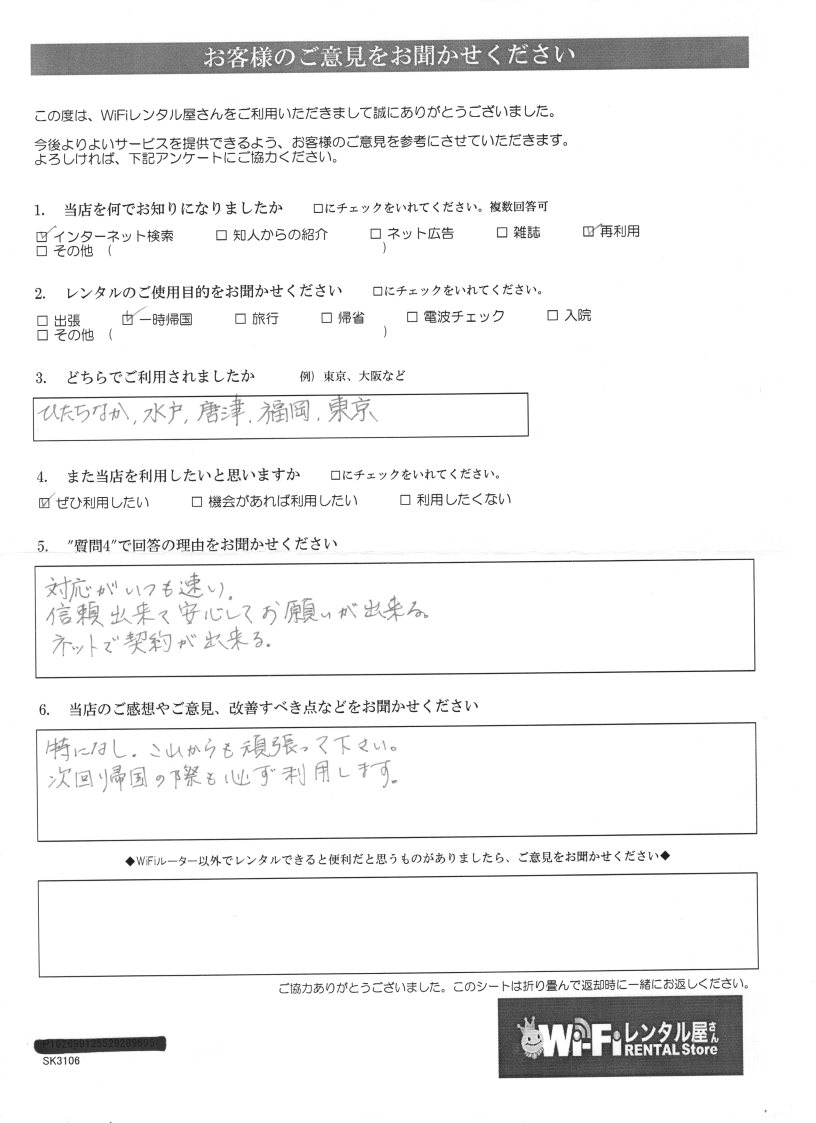 お客様のご意見をお聞かせください
この度は、WiFiレンタル屋さんをご利用いただきまして誠にありがとうございました。
今後よりよいサービスを提供できるよう、お客様のご意見を参考にさせていただきます。
よろしければ、下記アンケートにご協力ください。
1. 当店を何でお知りになりましたか □にチェックをいれてください。複数回答可
☑インターネット検索 □ 知人からの紹介 □ ネット広告 □ 雑誌 ☑再利用
□ その他 ( )
2. レンタルのご使用目的をお聞かせください □にチェックをいれてください。
□ 出張 ☑一時帰国 □ 旅行 □ 帰省 □ 電波チェック □ 入院
□ その他 ( )
3. どちらでご利用されましたか 例) 東京、大阪など
ひたちなか, 水戸, 唐津, 福岡, 東京
4. また当店を利用したいと思いますか □にチェックをいれてください。
☑ぜひ利用したい □ 機会があれば利用したい □ 利用したくない
5. "質問4"で回答の理由をお聞かせください
対応がいつも速い。
信頼出来て安心してお願いが出来る。
ネットで契約が出来る。
6. 当店のご感想やご意見、改善すべき点などをお聞かせください
特になし。これからも頑張って下さい。
次回帰国の際も必ず利用します。
◆WiFiルーター以外でレンタルできると便利だと思うものがありましたら、ご意見をお聞かせください◆
ご協力ありがとうございました。このシートは折り畳んで返却時に一緒にお返しください。
Wi-Fiレンタル屋さん
RENTAL Store
SK3106